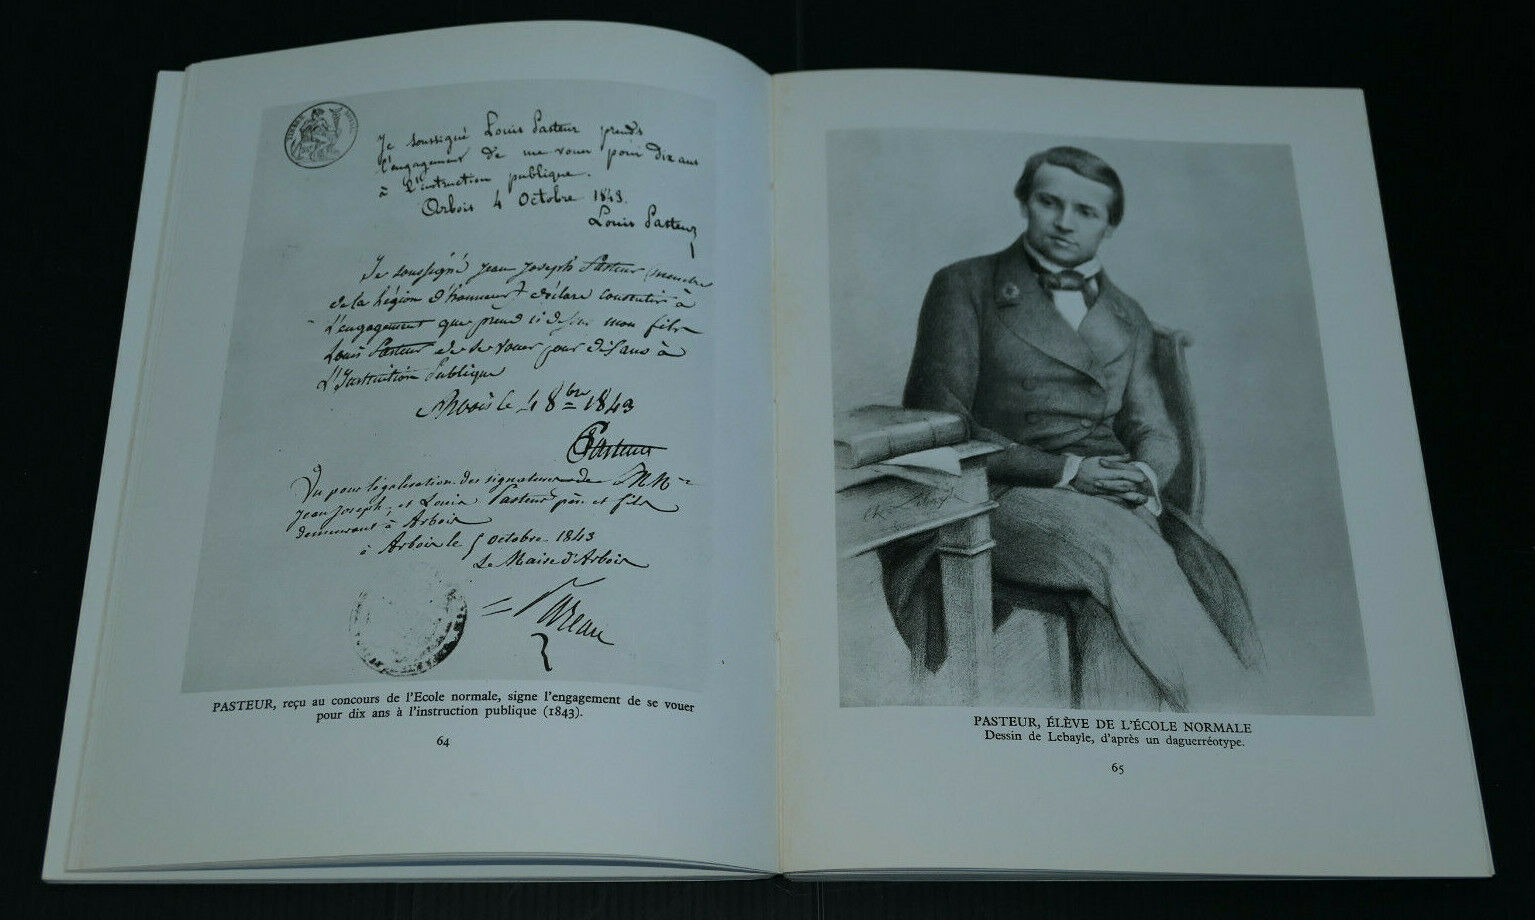 Je soussigné Louis Pasteur prends
l'engagement de me vouer pour dix ans
à l'instruction publique.
Arbois 4 Octobre 1843.
Louis Pasteur
Je soussigné jean joseph Pasteur membre
de la Légion d'honneur déclare consentir à
l'engagement que prend ci dessus mon fils
Louis Pasteur de se vouer pour dix ans à
L'Instruction Publique
Arbois le 4 8bre 1843
Pasteur
Vu pour légalisation des signatures de M.M.
jean joseph, et Louis Pasteur père et fils
demeurant à Arbois
à Arbois le 5 octobre 1843
Le Maire d'Arbois
PASTEUR, reçu au concours de l'Ecole normale, signe l'engagement de se vouer
pour dix ans à l'instruction publique (1843).
64
PASTEUR, ÉLÈVE DE L'ÉCOLE NORMALE
Dessin de Lebayle, d'après un daguerréotype.
65